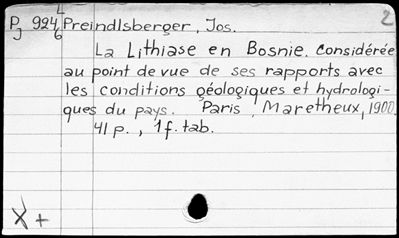 4
P 924 Preindlsberger, Jos. 2
J 6
La Lithiase en Bosnie. Considérée
au point de vue de ses rapports avec
les conditions géologiques et hydrologi-
ques du pays. Paris, Maretheux, 1900.
41 p., 1 f. tab.
X +